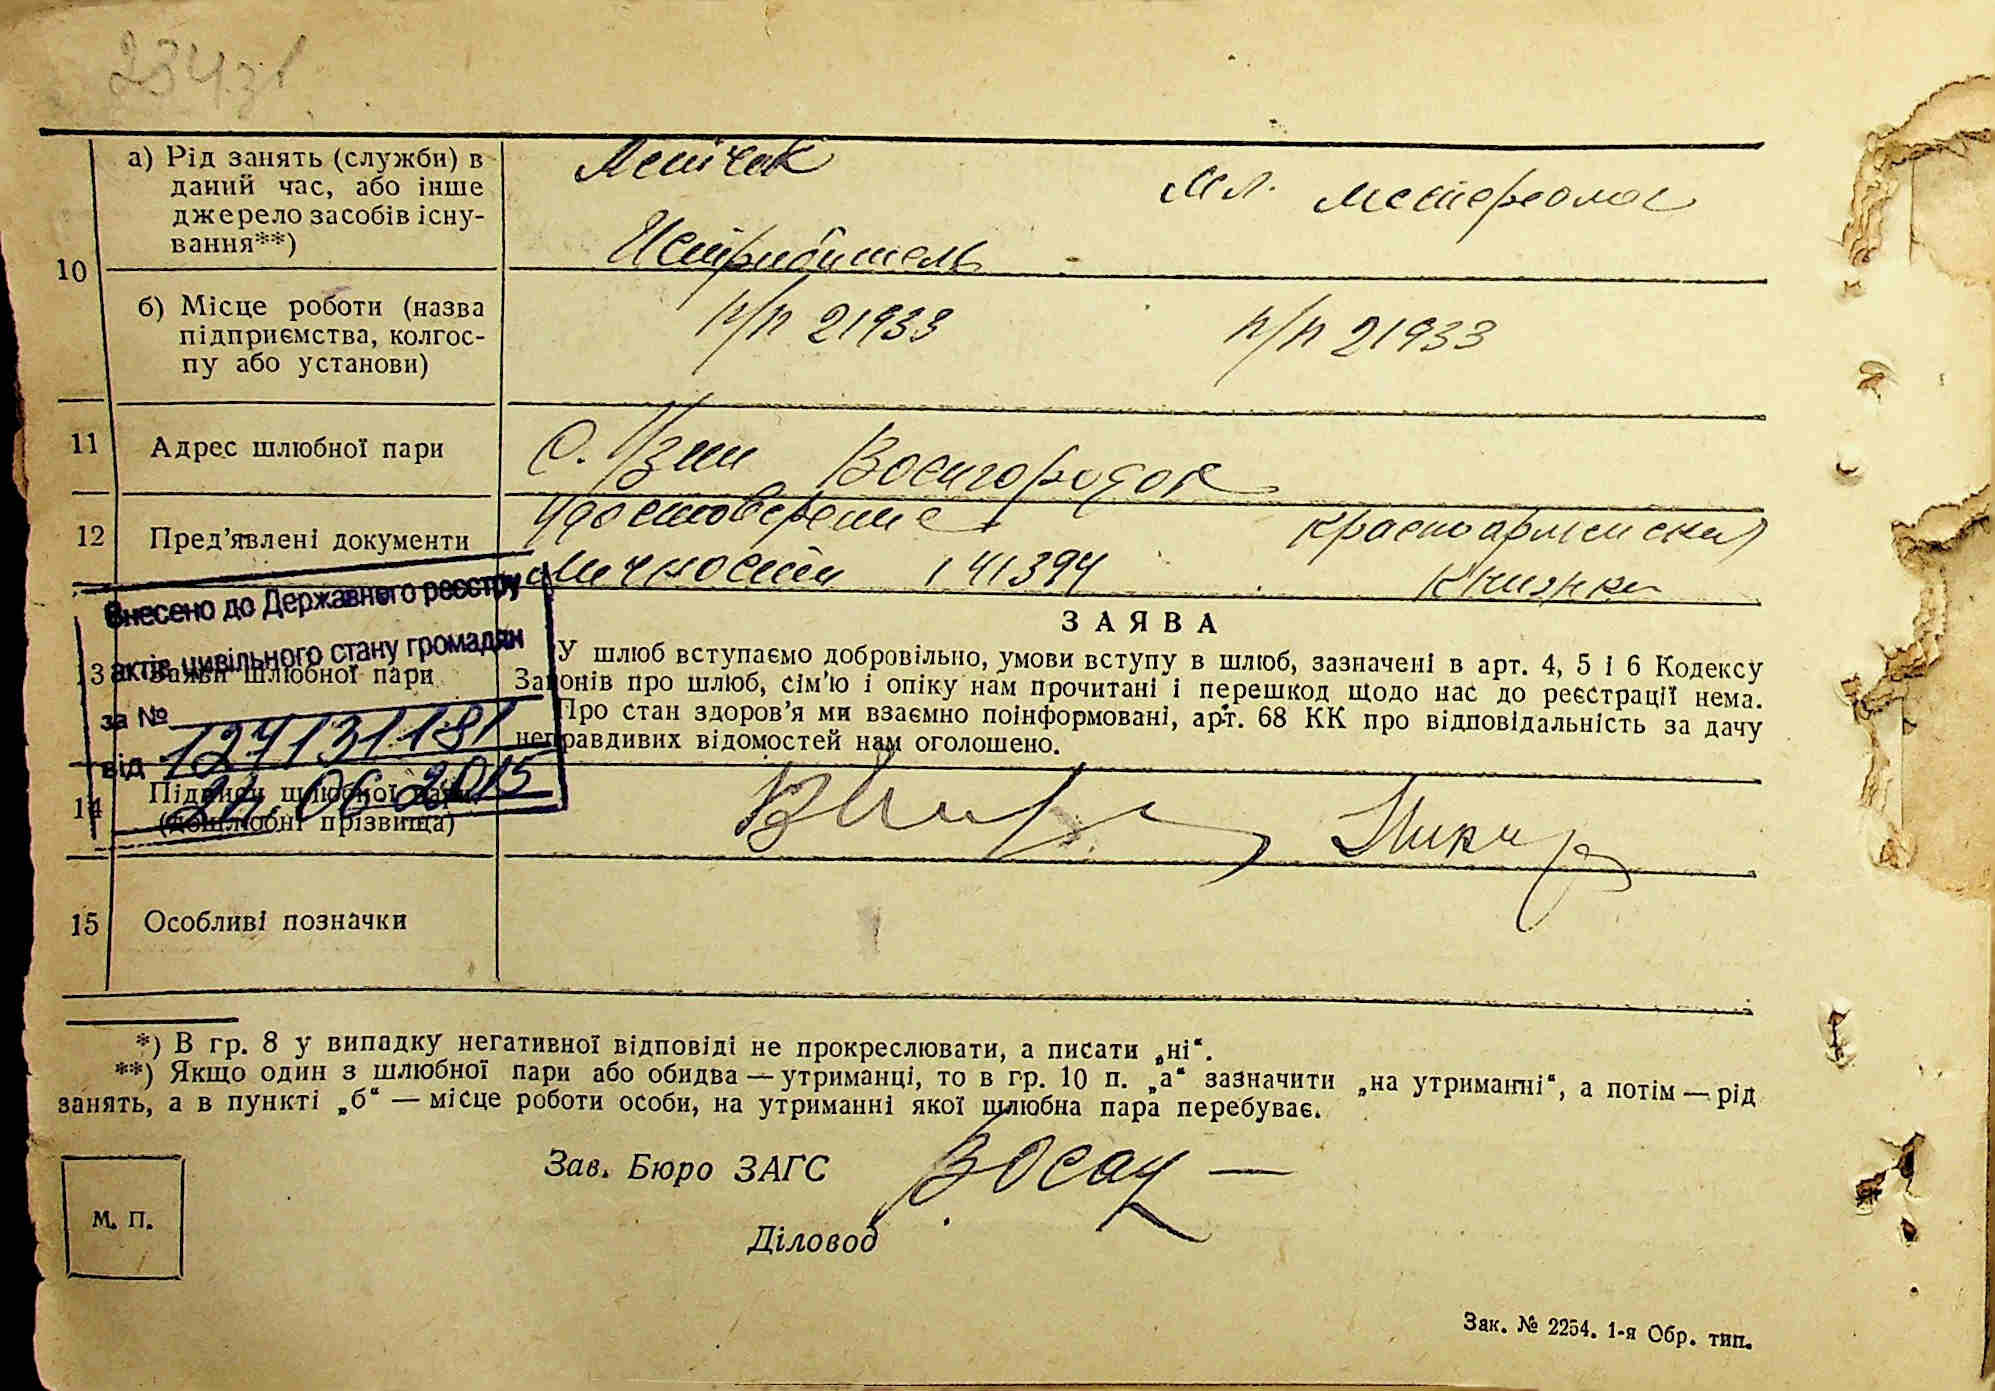 234зв
10
а) Рід занять (служби) в
даний час, або інше
джерело засобів існу-
вання**)
Летчик
Истребитель
Мл. метеролог
б) Місце роботи (назва
підприємства, колгос-
пу або установи)
п/п 21933
п/п 21933
11
Адрес шлюбної пари
С. Узин Воengородок
12
Пред’явлені документи
Удостоверение
личности 141394
Красноармейская
книжка
Внесено до Державного реєстру
актів цивільного стану громадян
за № 127131181
від 24.06.2015
13 Заяви шлюбної пари
ЗАЯВА
У шлюб вступаємо добровільно, умови вступу в шлюб, зазначені в арт. 4, 5 і 6 Кодексу
Законів про шлюб, сім’ю і опіку нам прочитані і перешкод щодо нас до реєстрації нема.
Про стан здоров’я ми взаємно поінформовані, арт. 68 КК про відповідальність за дачу
неправдивих відомостей нам оголошено.
14
Підписи шлюбної пари
(дошлюбні прізвища)
15
Особливі позначки
*) В гр. 8 у випадку негативної відповіді не прокреслювати, а писати „ні“.
**) Якщо один з шлюбної пари або обидва — утриманці, то в гр. 10 п. „а“ зазначити „на утриманні“, а потім — рід
занять, а в пункті „б“ — місце роботи особи, на утриманні якої шлюбна пара перебуває.
Зав. Бюро ЗАГС
Діловод
М. П.
Зак. № 2254. 1-я Обр. тип.